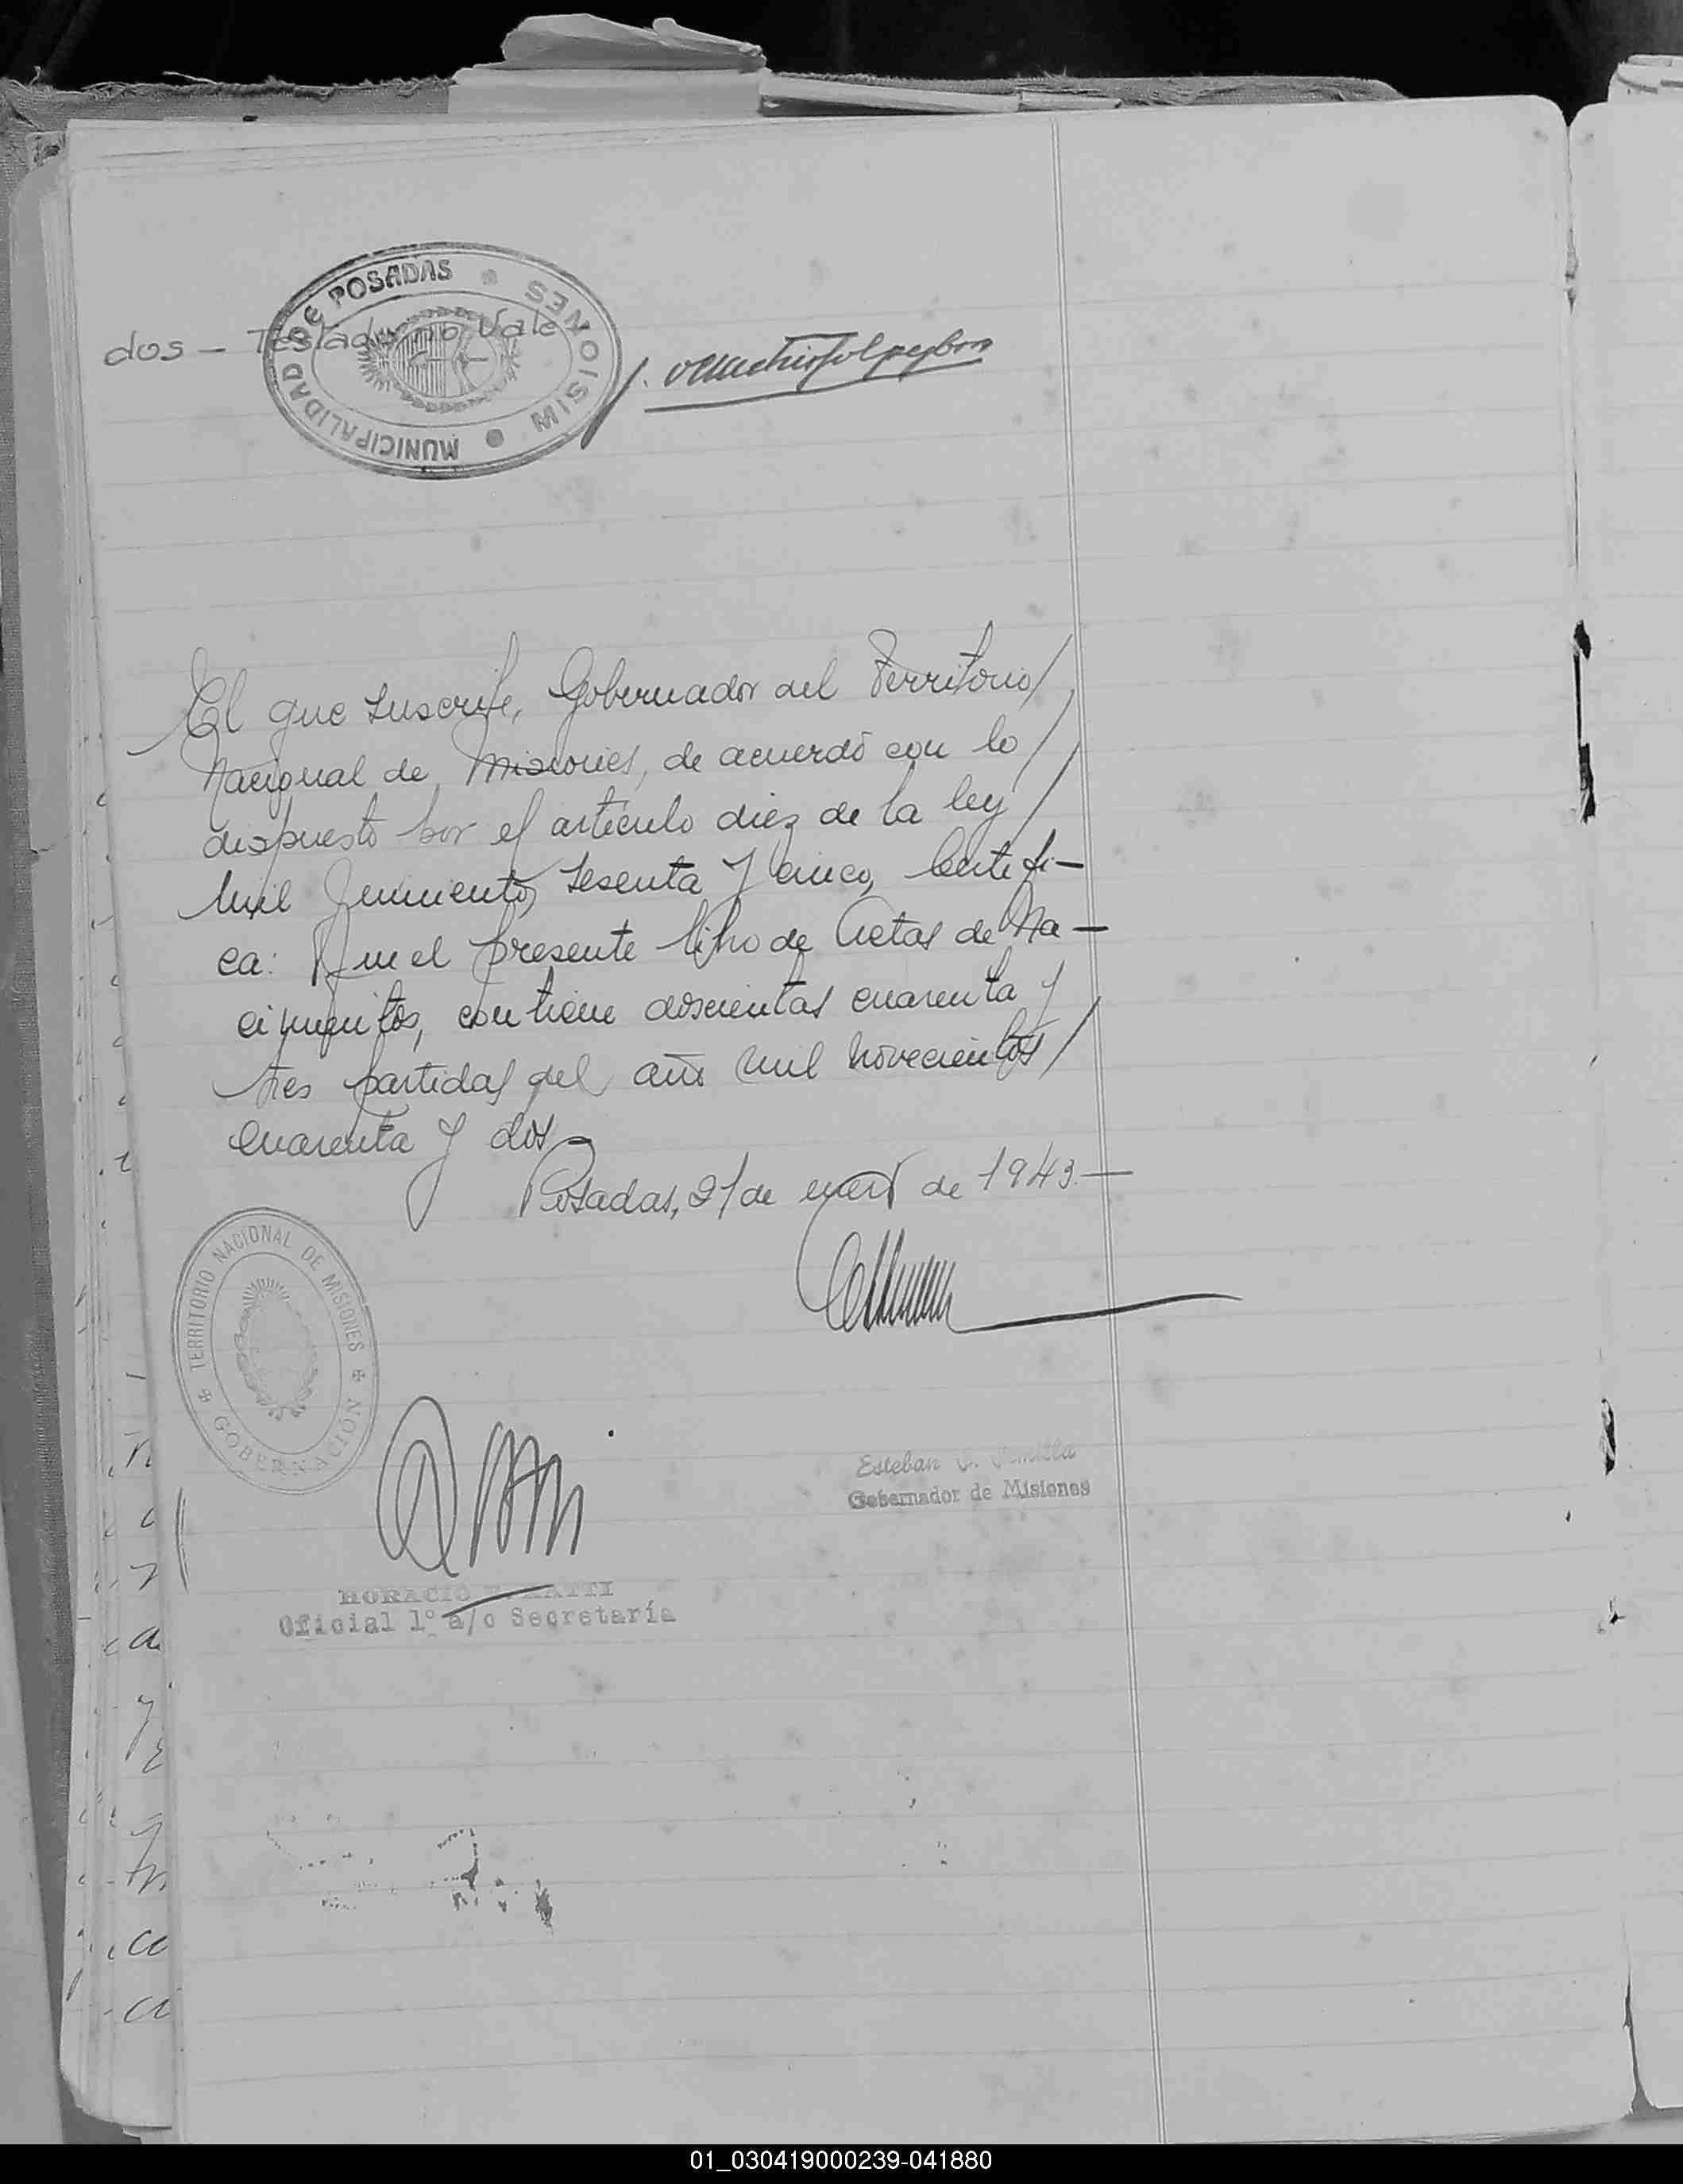 MUNICIPALIDAD DE POSADAS
MISIONES
dos - Testado no Vale
El que suscribe, Gobernador del Territorio/
Nacional de Misiones, de acuerdo con lo/
dispuesto por el artículo diez de la ley/
mil quinientos sesenta y cinco, Certifi-
ca: Que el presente libro de Actas de Na-
cimientos, contiene doscientas cuarenta y
tres partidas del año mil novecientos/
cuarenta y dos-
Posadas, 21 de enero de 1943.-
TERRITORIO NACIONAL DE MISIONES
GOBERNACIÓN
Esteban
Gobernador de Misiones
HORACIO
Oficial 1º a/c Secretaría
01_030419000239-041880